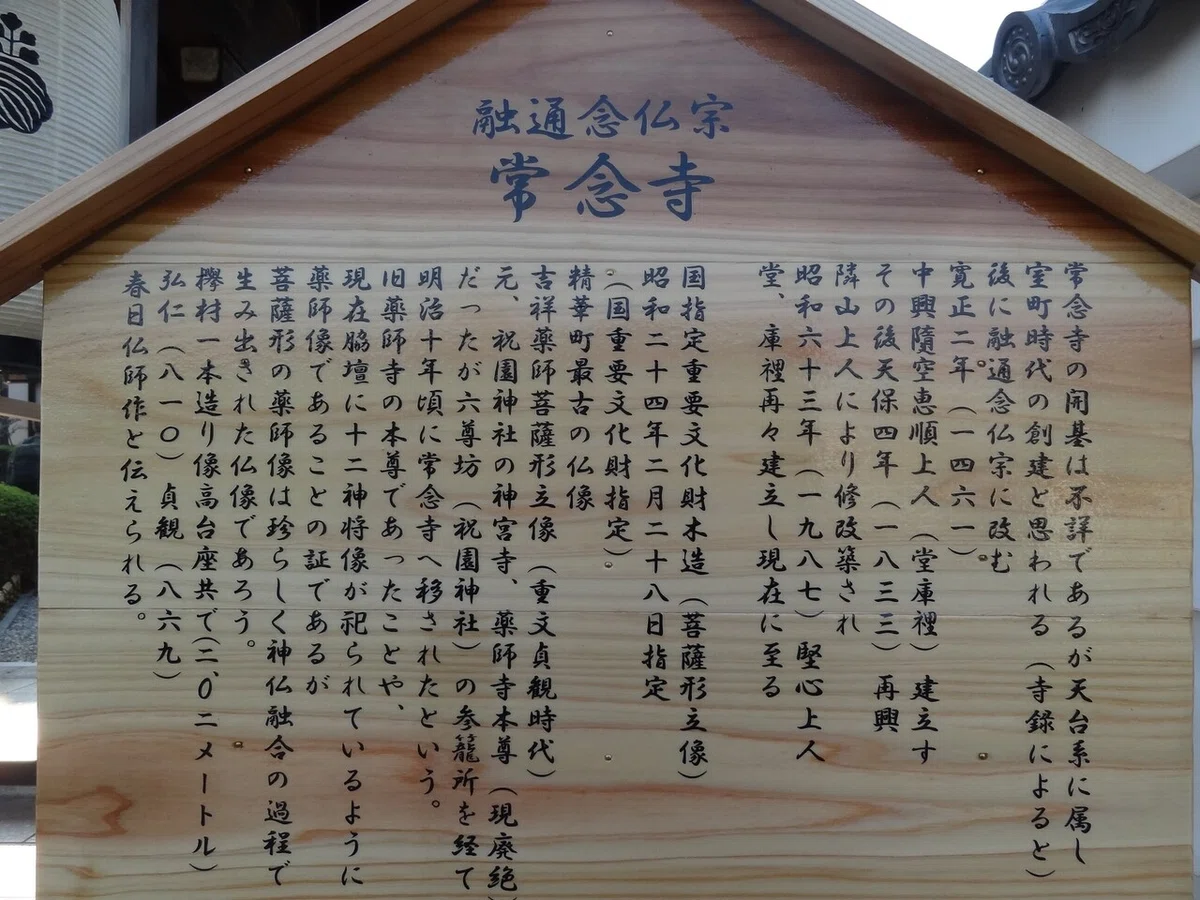 融通念仏宗
常念寺
常念寺の開基は不詳であるが天台系に属し
室町時代の創建と思われる（寺録によると）
後に融通念仏宗に改む。
寛正二年（一四六一）。
中興隨空恵順上人（堂庫裡）建立す
その後天保四年（一八三三）再興
隣山上人により修改築され
昭和六十三年（一九八七）堅心上人
堂、庫裡再々建立し現在に至る
国指定重要文化財木造（菩薩形立像）
昭和二十四年二月二十八日指定
（国重要文化財指定）
精華町最古の仏像
吉祥薬師菩薩形立像（重文貞観時代）
元、祝園神社の神宮寺、薬師寺本尊（現廃絶）
だったが六尊坊（祝園神社）の参籠所を経て
明治十年頃に常念寺へ移されたという。
旧薬師寺の本尊であったことや、
現在脇壇に十二神将像が祀られているように
薬師像であることの証であるが
菩薩形の薬師像は珍らしく神仏融合の過程で
生み出された仏像であろう。
欅材一本造り像高台座共で（二、〇二メートル）
弘仁（八一〇）貞観（八六九）
春日仏師作と伝えられる。